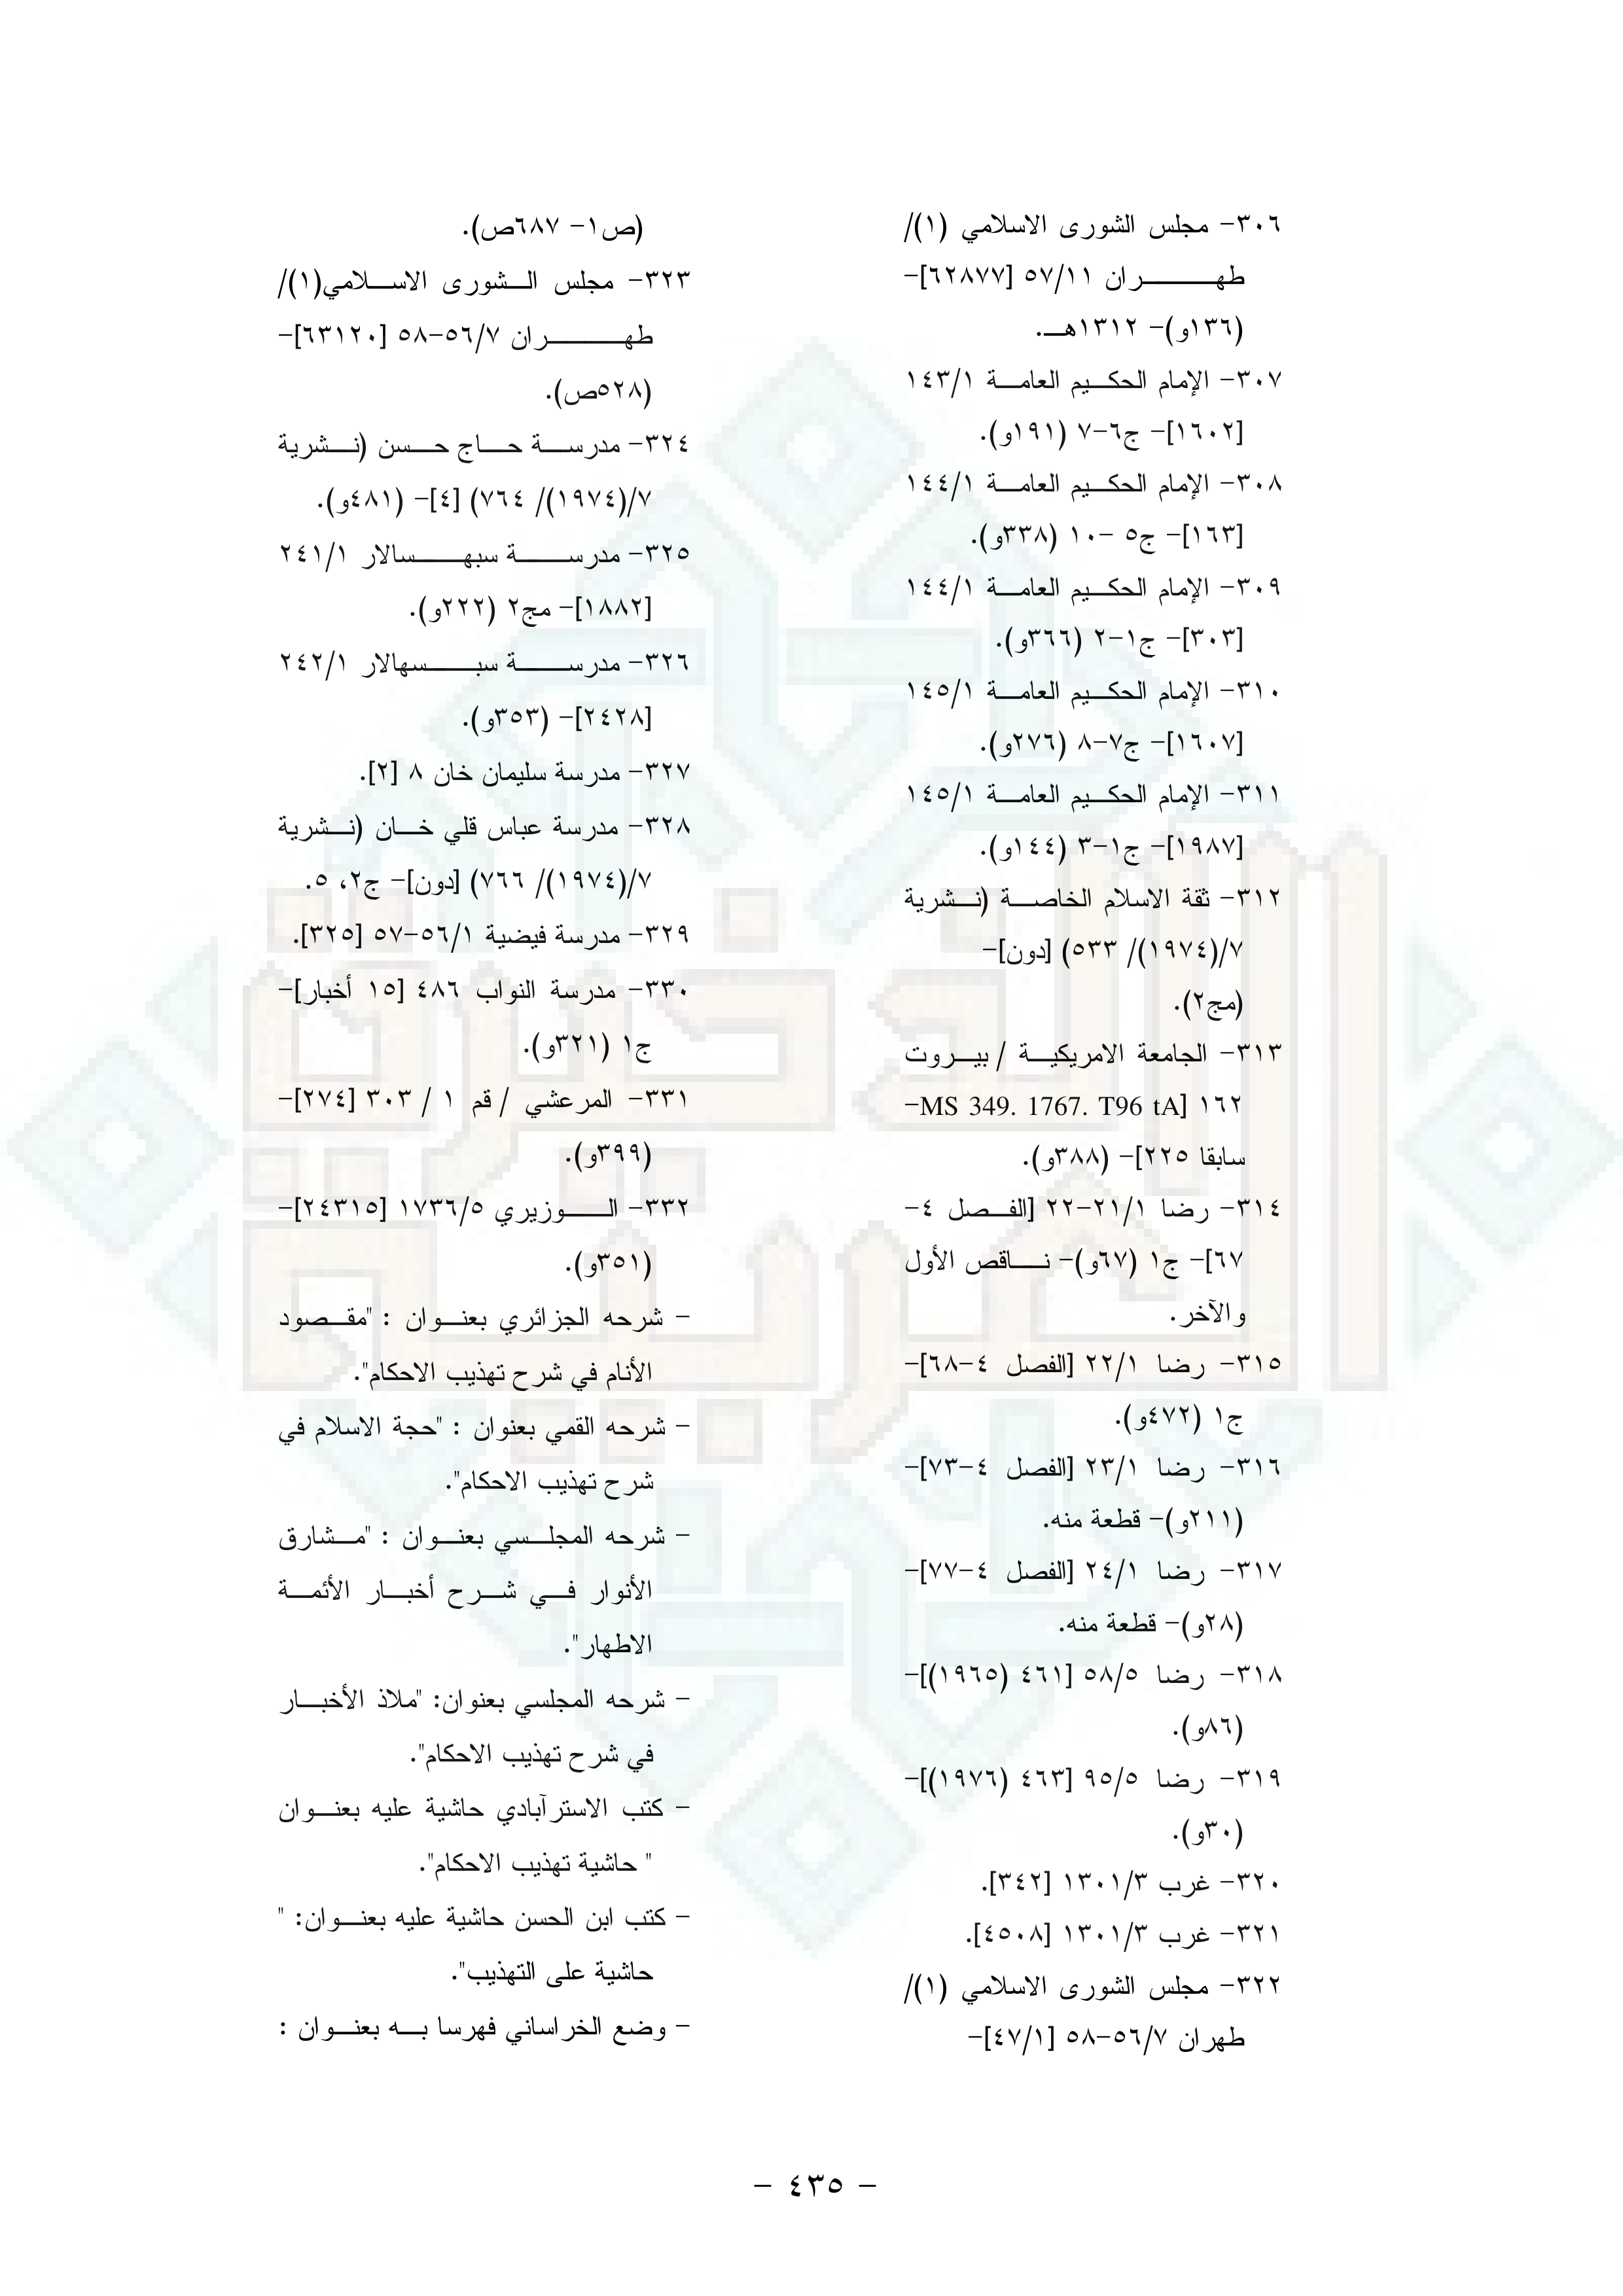 ٣٠٦- مجلس الشورى الاسلامي (١)/
طهران ٥٧/١١ [٦٢٨٧٧]-
(١٣٦و)- ١٣١٢هـ.
٣٠٧- الإمام الحكيم العامة ١٤٣/١
[١٦٠٢]- ج٦-٧ (١٩١و).
٣٠٨- الإمام الحكيم العامة ١٤٤/١
[١٦٣]- ج٥ -١٠ (٣٣٨و).
٣٠٩- الإمام الحكيم العامة ١٤٤/١
[٣٠٣]- ج١-٢ (٣٦٦و).
٣١٠- الإمام الحكيم العامة ١٤٥/١
[١٦٠٧]- ج٧-٨ (٢٧٦و).
٣١١- الإمام الحكيم العامة ١٤٥/١
[١٩٨٧]- ج١-٣ (١٤٤و).
٣١٢- ثقة الاسلام الخاصة (نشرية
٧/(١٩٧٤)/ ٥٣٣) [دون]-
(مج٢).
٣١٣- الجامعة الامريكية / بيروت
١٦٢ [MS 349. 1767. T96 tA-
سابقا ٢٢٥]- (٣٨٨و).
٣١٤- رضا ٢١/١-٢٢ [الفصل ٤-
٦٧]- ج١ (٦٧و)- ناقص الأول
والآخر.
٣١٥- رضا ٢٢/١ [الفصل ٤-٦٨]-
ج١ (٤٧٢و).
٣١٦- رضا ٢٣/١ [الفصل ٤-٧٣]-
(٢١١و)- قطعة منه.
٣١٧- رضا ٢٤/١ [الفصل ٤-٧٧]-
(٢٨و)- قطعة منه.
٣١٨- رضا ٥٨/٥ [٤٦١ (١٩٦٥)]-
(٨٦و).
٣١٩- رضا ٩٥/٥ [٤٦٣ (١٩٧٦)]-
(٣٠و).
٣٢٠- غرب ١٣٠١/٣ [٣٤٢].
٣٢١- غرب ١٣٠١/٣ [٤٥٠٨].
٣٢٢- مجلس الشورى الاسلامي (١)/
طهران ٥٦/٧-٥٨ [٤٧/١]-
(ص١- ٦٨٧ص).
٣٢٣- مجلس الشورى الاسلامي(١)/
طهران ٥٦/٧-٥٨ [٦٣١٢٠]-
(٥٢٨ص).
٣٢٤- مدرسة حاج حسن (نشرية
٧/(١٩٧٤)/ ٧٦٤) [٤]- (٤٨١و).
٣٢٥- مدرسة سبهسالار ٢٤١/١
[١٨٨٢]- مج٢ (٢٢٢و).
٣٢٦- مدرسة سبسهالار ٢٤٢/١
[٢٤٢٨]- (٣٥٣و).
٣٢٧- مدرسة سليمان خان ٨ [٢].
٣٢٨- مدرسة عباس قلي خان (نشرية
٧/(١٩٧٤)/ ٧٦٦) [دون]- ج٢، ٥.
٣٢٩- مدرسة فيضية ٥٦/١-٥٧ [٣٢٥].
٣٣٠- مدرسة النواب ٤٨٦ [١٥ أخبار]-
ج١ (٣٢١و).
٣٣١- المرعشي / قم ١ / ٣٠٣ [٢٧٤]-
(٣٩٩و).
٣٣٢- الوزيري ١٧٣٦/٥ [٢٤٣١٥]-
(٣٥١و).
- شرحه الجزائري بعنوان : "مقصود
الأنام في شرح تهذيب الاحكام".
- شرحه القمي بعنوان : "حجة الاسلام في
شرح تهذيب الاحكام".
- شرحه المجلسي بعنوان : "مشارق
الأنوار في شرح أخبار الأئمة
الاطهار".
- شرحه المجلسي بعنوان: "ملاذ الأخبار
في شرح تهذيب الاحكام".
- كتب الاسترآبادي حاشية عليه بعنوان
" حاشية تهذيب الاحكام".
- كتب ابن الحسن حاشية عليه بعنوان: "
حاشية على التهذيب".
- وضع الخراساني فهرسا به بعنوان :
- ٤٣٥ -
الذخيرة
العربية